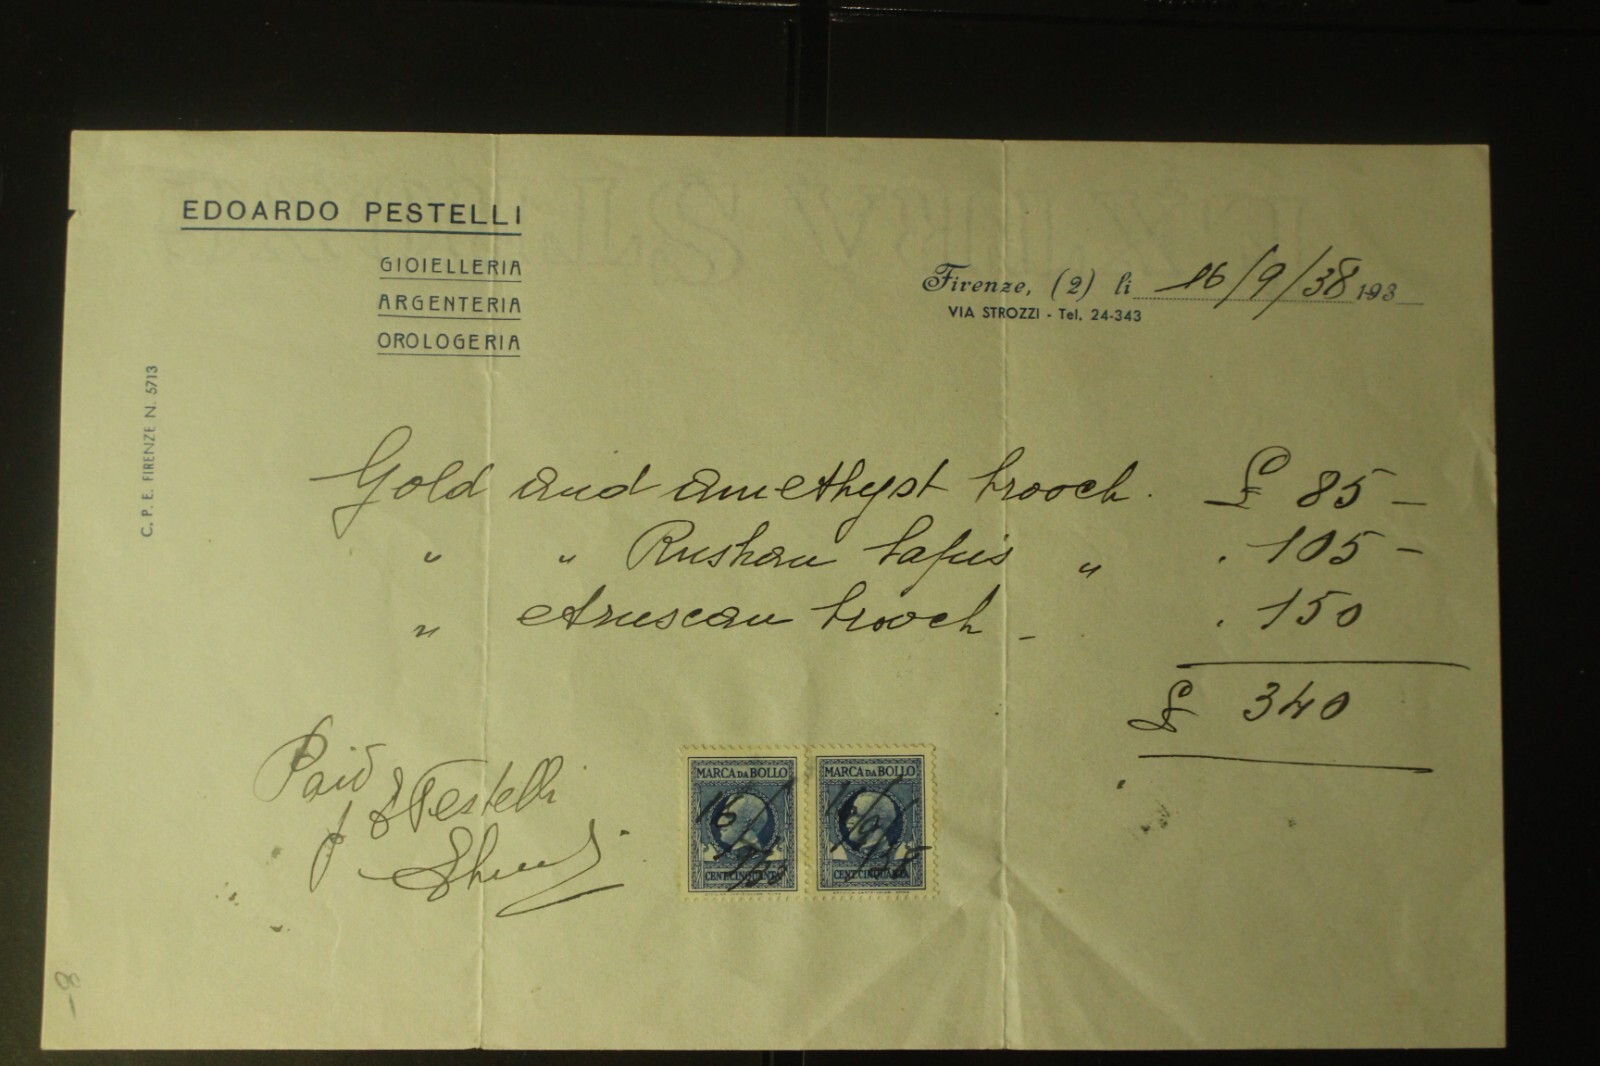 EDOARDO PESTELLI
GIOIELLERIA
ARGENTERIA
OROLOGERIA
Firenze, (2) li 16/9/38 193
VIA STROZZI - Tel. 24-343
C. P. E. FIRENZE N. 5713
Gold and amethyst brooch. £ 85 -
" " Rushan lapis " . 105 -
" etruscan brooch - . 150
£ 340
Paid
p E Pestelli
MARCA DA BOLLO
16/9/38
CENT. CINQUANTA
MARCA DA BOLLO
16/9/38
CENT. CINQUANTA
8-